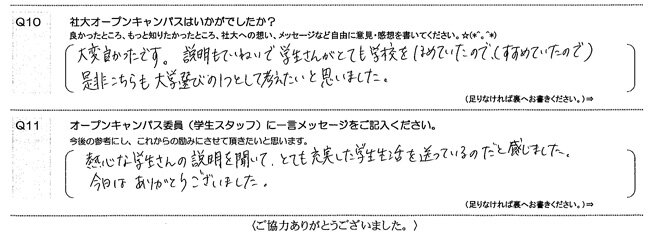 Q10 社大オープンキャンパスはいかがでしたか？
良かったところ、もっと知りたかったところ、社大への想い、メッセージなど自由に意見・感想を書いてください。☆(*^。^*)
大変良かったです。説明もていねいで学生さんがとても学校をほめていたので、(すすめていたので)
是非こちらも大学選びの1つとして考えたいと思いました。
(足りなければ裏へお書きください。)⇒
Q11 オープンキャンパス委員（学生スタッフ）に一言メッセージをご記入ください。
今後の参考にし、これからの励みにさせて頂きたいと思います。
熱心な学生さんの説明を聞いて、とても充実した学生生活を送っているのだと感じました。
今日は ありがとうございました。
(足りなければ裏へお書きください。)⇒
〈ご協力ありがとうございました。〉